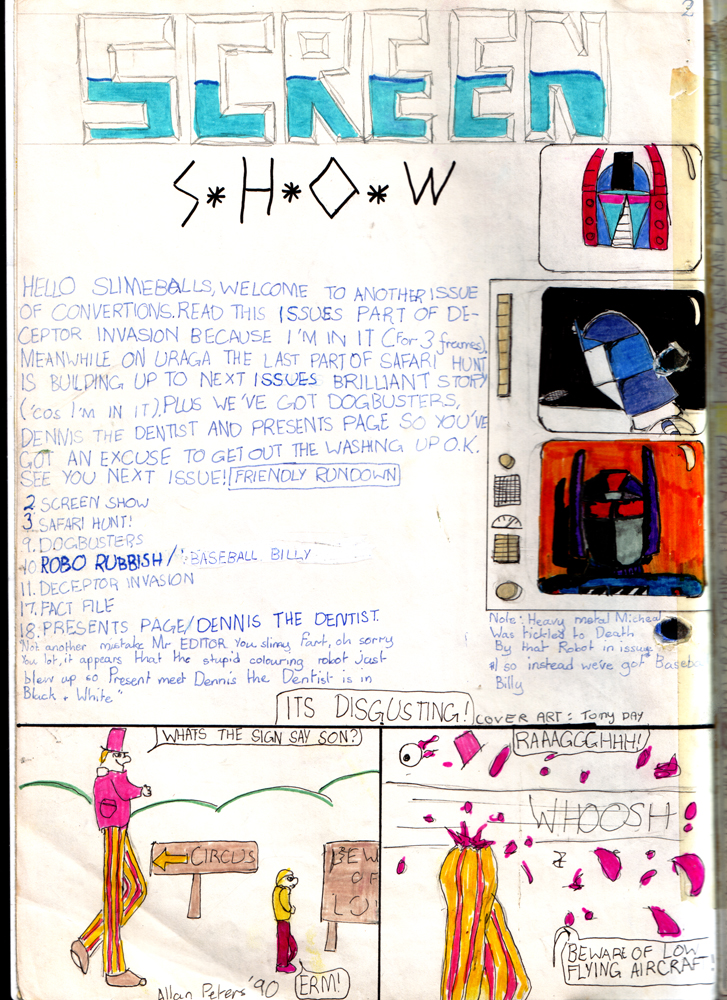 2
SCREEN
S*H*O*W
HELLO SLIMEBALLS, WELCOME TO ANOTHER ISSUE
OF CONVERTIONS. READ THIS ISSUES PART OF DE-
CEPTOR INVASION BECAUSE I'M IN IT (for 3 frames).
MEANWHILE ON URAGA THE LAST PART OF SAFARI HUNT
IS BUILDING UP TO NEXT ISSUES BRILLIANT STORY
('cos I'M IN IT). PLUS WE'VE GOT DOGBUSTERS,
DENNIS THE DENTIST AND PRESENTS PAGE SO YOU'VE
GOT AN EXCUSE TO GET OUT THE WASHING UP O.K.
SEE YOU NEXT ISSUE! FRIENDLY RUNDOWN
2. SCREEN SHOW
3. SAFARI HUNT!
9. DOGBUSTERS
10. ROBO RUBBISH / BASEBALL BILLY
11. DECEPTOR INVASION
17. FACT FILE
18. PRESENTS PAGE/DENNIS THE DENTIST.
"Not another mistake Mr EDITOR you slimey Fart, oh sorry
You lot, it appears that the stupid colouring robot just
blew up so Present meet Dennis the Dentist is in
Black + White"
Note: Heavy metal Micheal
Was tickled to Death
By that Robot in issue
#1 so instead we've got Baseba
Billy
ITS DISGUSTING!
COVER ART: TONY DAY
WHATS THE SIGN SAY SON?
CIRCUS
BEW
OF
LO
ERM!
Allan Peters '90
RAAAGGGHHH!
WHOOSH
BEWARE OF LOW
FLYING AIRCRAF